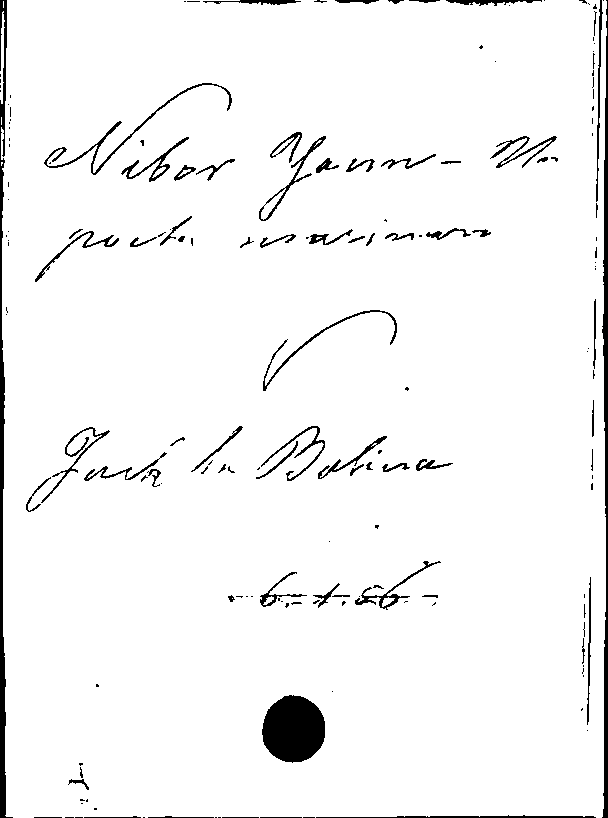 Nibor Yann - Un
poeta marinaro
Jack la Bolina
6.1.66